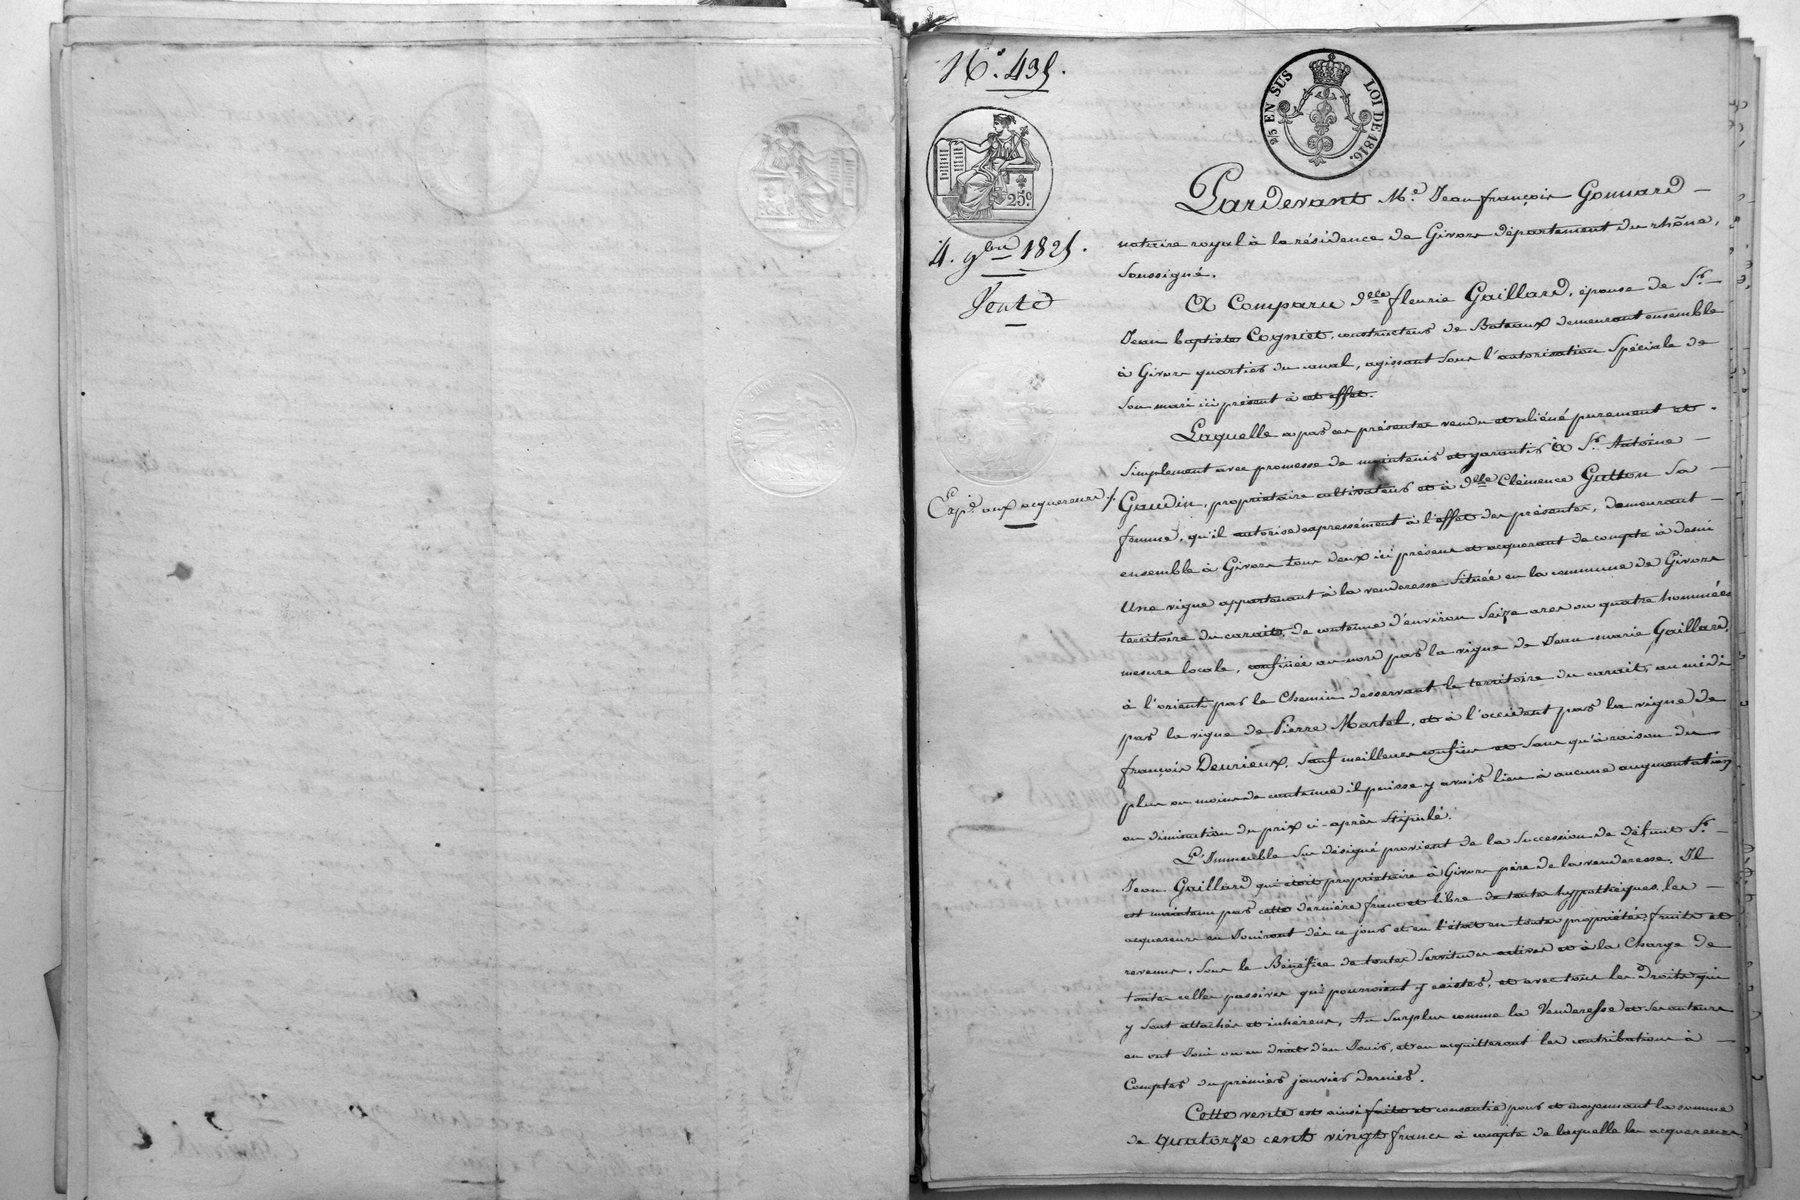 N.° 435.
2/5 EN SUS LOI DE 1816.
25c
4. 9bre 1825.
Vente
Expé. aux acquereurs /.
Pardevant Me. Jean françois Gonnard —
notaire royal à la résidence de Givors département du rhône,
soussigné.
A Comparu dlle fleurie Gaillard, épouse de Sr. —
Jean baptiste Cogniet, constructeur de Bateaux demeurant ensemble
à Givors quartier du canal, agissant sous l'autorisation Spéciale de
Son mari ici présent à cet effet.
Laquelle a par ces présentes vendu et aliéné purement et
Simplement avec promesse de maintenir et garantir à Sr. Antoine —
Gaudin, proprietaire cultivateur et à dlle Clémence Gutton Sa —
femme, qu'il autorise expressément à l'effet des présentes, demeurant —
ensemble à Givors tous deux ici présens et acquerant de compte à demi
Une vigne appartenant à la venderesse Située en la commune de Givors
territoire du carait, de contenue d'environ Seize ares ou quatre hommées
mesure locale, confinée au nord par la vigne de Jean-marie Gaillard,
à l'orient par le Chemin desservant le territoire du carait, au midi
par la vigne de Pierre Martel, et à l'occident par la vigne de
françois Deurieux. Sauf meilleurs confins et Sans qu'à raison du
plus ou moins de contenue il puisse y avoir lieu à aucune augmentation
ou diminution du prix ci-après Stipulé.
L'Immeuble Sus désigné provient de la Succession de défunt Sr. —
Jean Gaillard qui étoit propriétaire à Givors père de la venderesse. Il
est maintenu par cette dernière franc et libre de toutes hypothèques. les —
acquereurs en Jouiront dès ce jour et en l'état en toute propriété, fruits et
revenus, Sous le Bénéfice de toutes Servitudes actives et à la Charge de
toutes celles passives qui pourroient y exister, et avec tous les droits qui
y Sont attachés et inhérens, Au Surplus comme la Venderesse et Ses auteurs
en ont Joui ou eu droit d'en Jouir, et en acquitteront les contributions à —
Compter du premier janvier dernier.
Cette vente est ainsi faite et consentie pour et moyennant la somme
de quatorze cent vingt francs à compte de laquelle les acquereurs